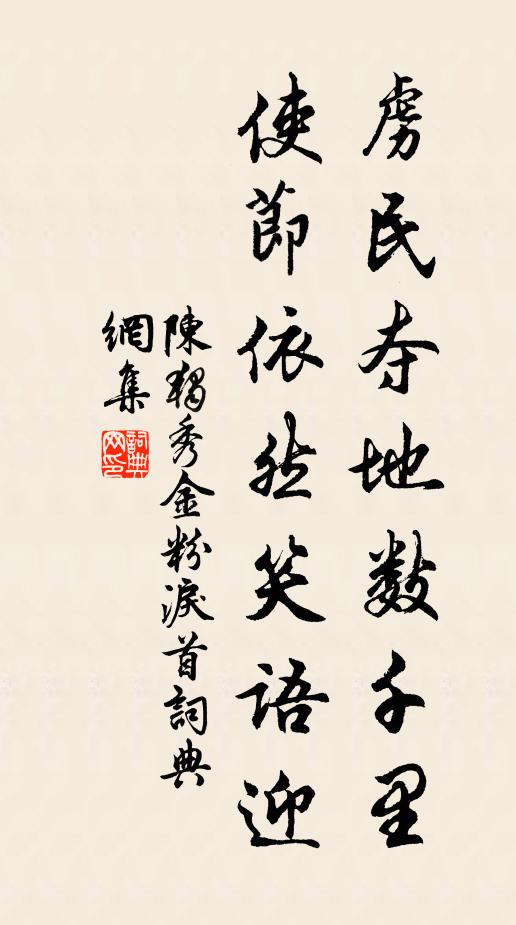 虜民夺地数千里
使節依然笑语迎
陳獨秀金粉淚首詞典
網集
詞典网印